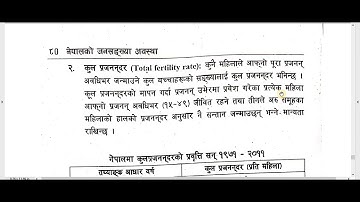 ८० नेपालको जनसङ्ख्या अवस्था
२. कुल प्रजननदर (Total fertility rate): कुनै महिलाले आफ्नो पूरा प्रजनन्
अवधिभर जन्माउने कुल बच्चाहरूको सङ्ख्यालाई कुल प्रजननदर भनिन्छ ।
कुल प्रजननदरको मापन गर्दा प्रजनन् उमेरमा प्रवेश गरेका प्रत्येक महिला
आफ्नो प्रजनन् अवधिभर (१५-४९) जीवित रहने तथा तीनले अरु समूहका
महिलाको हालको प्रजननदर अनुसार नै सन्तान जन्माउछन् भन्ने मान्यता
राखिन्छ ।
नेपालमा कुलप्रजननदरको प्रवृत्ति सन् १९७१ - २०११
तथ्याङ्क आधार वर्ष कुल प्रजननदर (प्रति महिला)